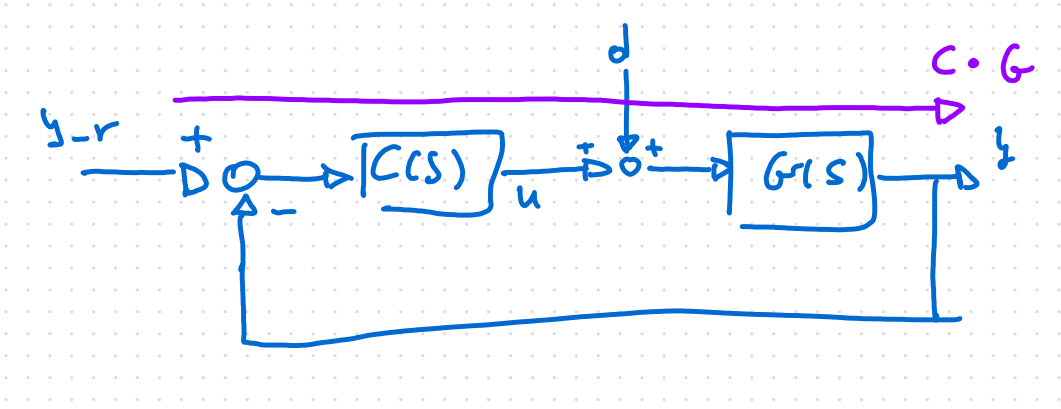 d
C · G
y_r
+
C(S)
u
+
+
G(S)
y
-